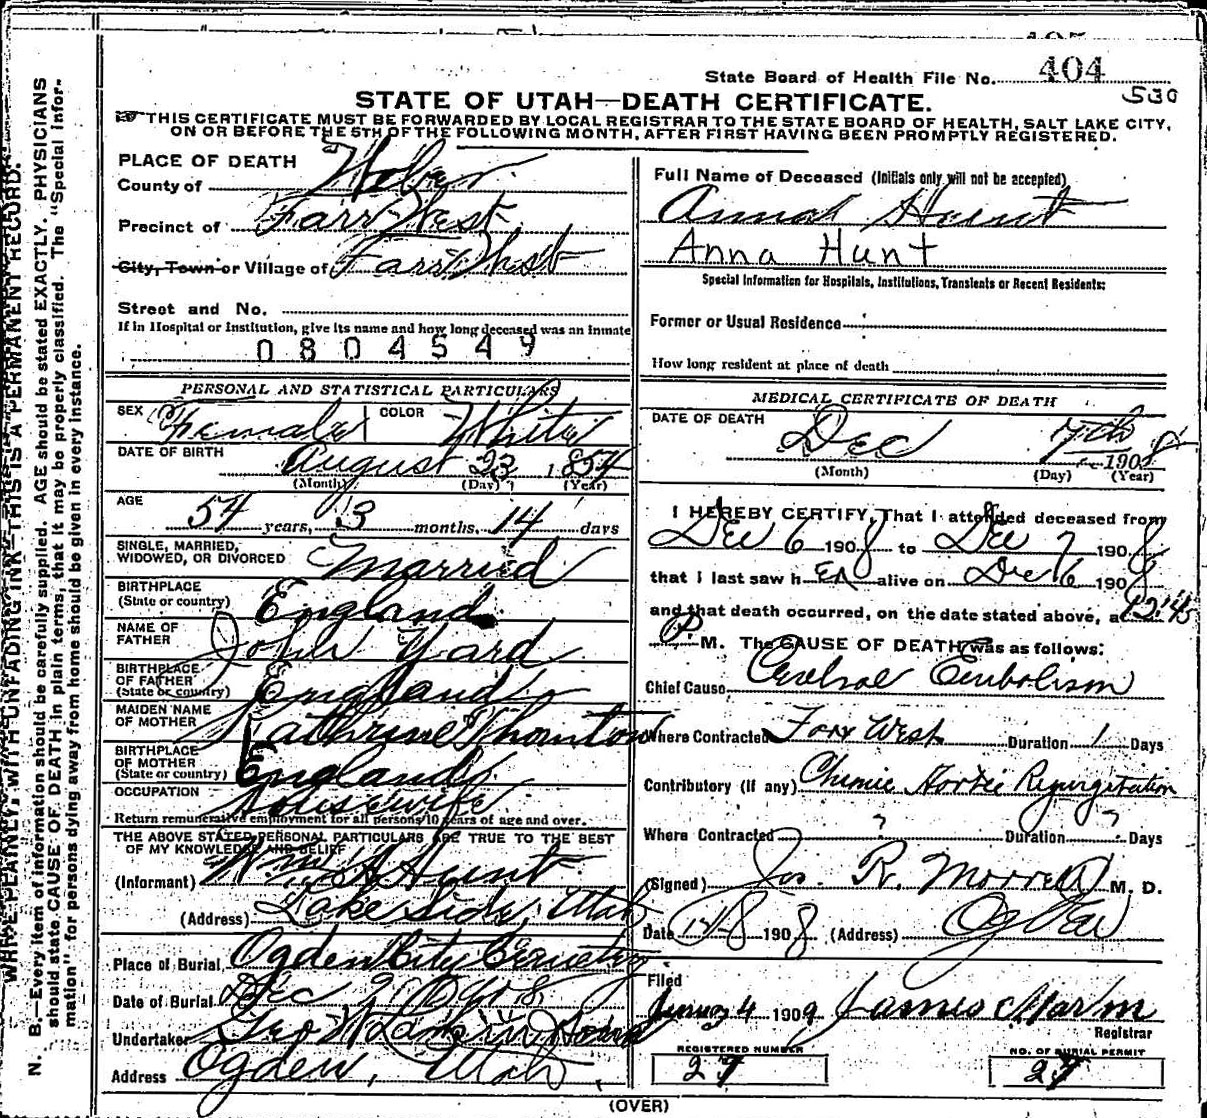 State Board of Health File No. 404
530
STATE OF UTAH—DEATH CERTIFICATE.
THIS CERTIFICATE MUST BE FORWARDED BY LOCAL REGISTRAR TO THE STATE BOARD OF HEALTH, SALT LAKE CITY,
ON OR BEFORE THE 5TH OF THE FOLLOWING MONTH, AFTER FIRST HAVING BEEN PROMPTLY REGISTERED.
WRITE PLAINLY, WITH UNFADING INK—THIS IS A PERMANENT RECORD.
N. B.—Every item of information should be carefully supplied. AGE should be stated EXACTLY. PHYSICIANS
should state CAUSE OF DEATH in plain terms, that it may be properly classified. The "Special Infor-
mation" for persons dying away from home should be given in every instance.
PLACE OF DEATH
County of Weber
Precinct of Farr West
City, Town or Village of Farr West
Street and No.
If in Hospital or Institution, give its name and how long deceased was an inmate
0804549
PERSONAL AND STATISTICAL PARTICULARS
SEX Female COLOR White
DATE OF BIRTH August 23 1854
(Month) (Day) (Year)
AGE 54 years, 3 months, 14 days
SINGLE, MARRIED,
WIDOWED, OR DIVORCED Married
BIRTHPLACE
(State or country) England
NAME OF
FATHER John Yard
BIRTHPLACE
OF FATHER
(State or country) England
MAIDEN NAME
OF MOTHER Kathrine Thornton
BIRTHPLACE
OF MOTHER
(State or country) England
OCCUPATION Housewife
Return remunerative employment for all persons 10 years of age and over.
THE ABOVE STATED PERSONAL PARTICULARS ARE TRUE TO THE BEST
OF MY KNOWLEDGE AND BELIEF
(Informant) Wm Hunt
(Address) Lake Side, Utah
Place of Burial Ogden City Cemetery
Date of Burial Dec 9 1908
Undertaker Geo W Larkin Sons
Address Ogden, Utah
Full Name of Deceased (Initials only will not be accepted)
Annah Hunt
Anna Hunt
Special Information for Hospitals, Institutions, Transients or Recent Residents:
Former or Usual Residence
How long resident at place of death
MEDICAL CERTIFICATE OF DEATH
DATE OF DEATH Dec 7th 1908
(Month) (Day) (Year)
I HEREBY CERTIFY, That I attended deceased from
Dec 6 1908 to Dec 7 1908
that I last saw her alive on Dec 6 1908
and that death occurred, on the date stated above, at 12:45
P. M. The CAUSE OF DEATH was as follows:
Chief Cause Cerebral Embolism
Where Contracted Farr West Duration 1 Days
Contributory (if any) Chronic Aortic Regurgitation
Where Contracted ? Duration ? Days
(Signed) Jos. R. Morrell M. D.
Date 1908 (Address) Ogden
Filed
4 1909 James Martin
Registrar
REGISTERED NUMBER
27
NO. OF BURIAL PERMIT
27
(OVER)